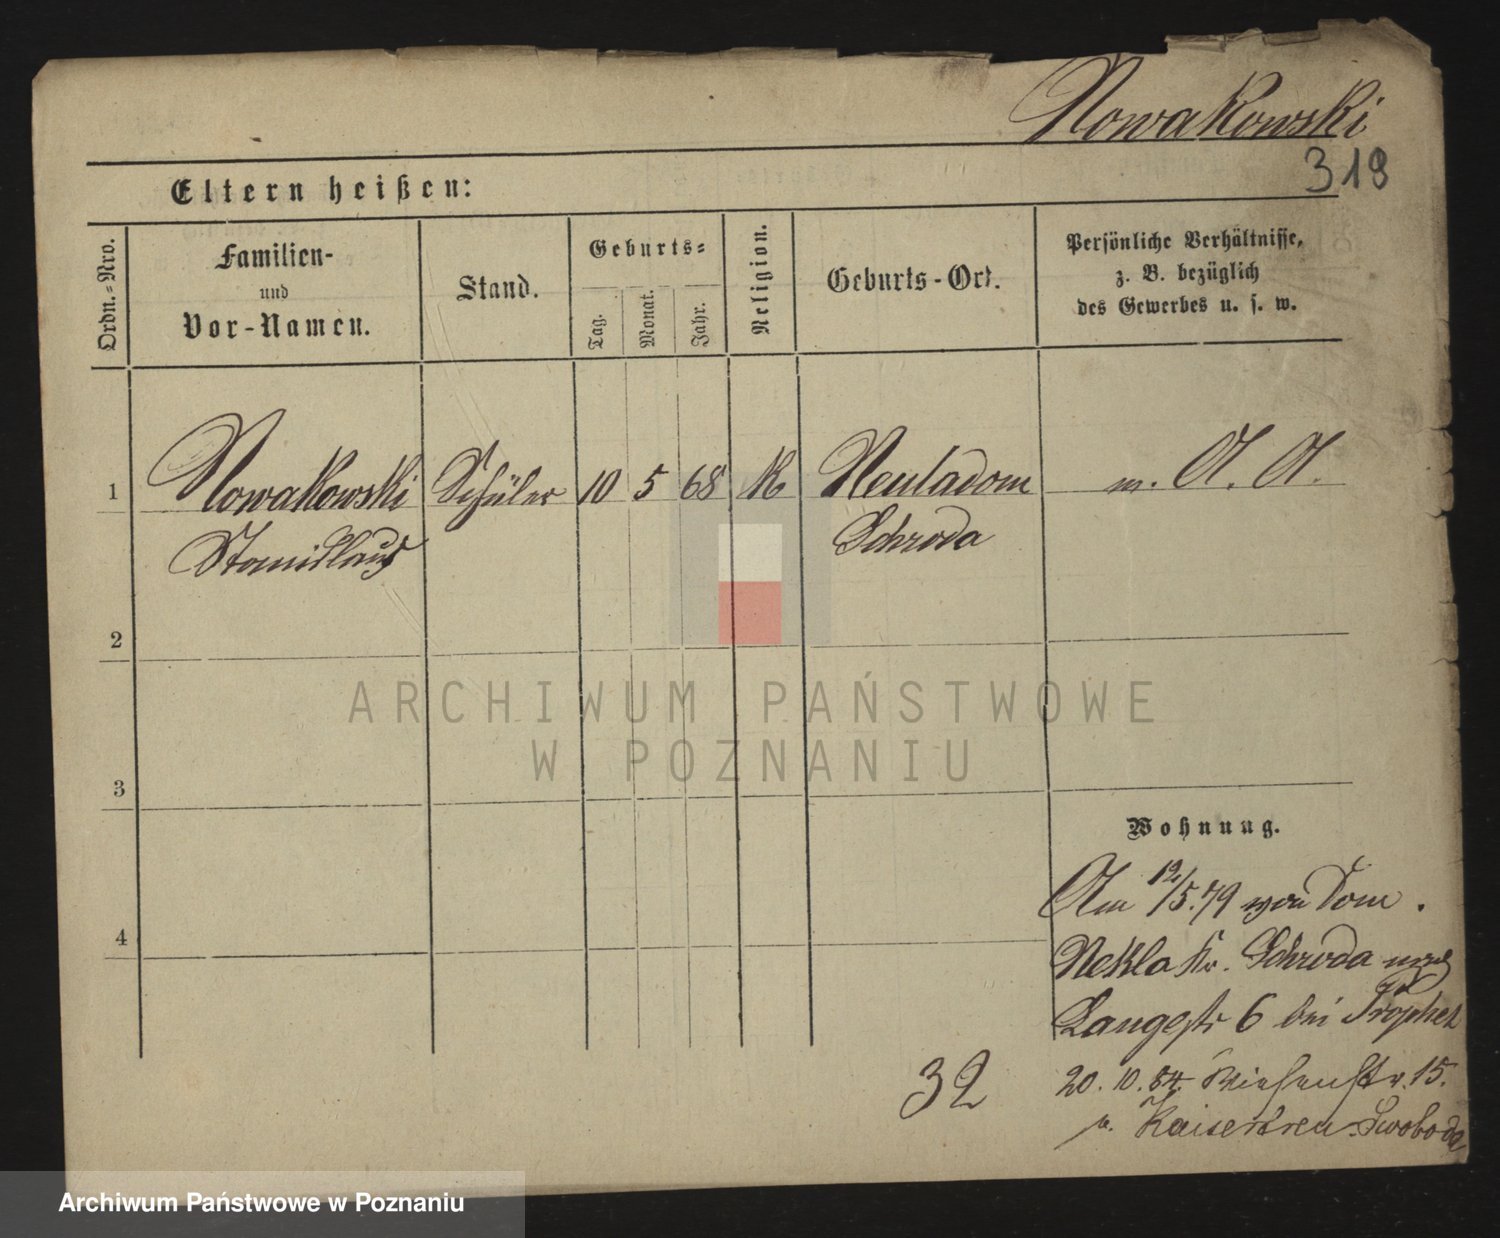 Nowakowski
318
Eltern heißen:
Ordn.-Nro.
Familien-
und
Vor-Namen.
Stand.
Geburts-
Tag.
Monat.
Jahr.
Religion.
Geburts-Ort.
Persönliche Verhältnisse,
z. B. bezüglich
des Gewerbes u. s. w.
1 Nowakowski Schüler 10 5 68 K Neuladom m. A. A.
Stanislaus Schroda
2
3
4
Wohnung.
Am 12/5.79 von Dom.
Nekla Kr. Schroda
Langestr 6 bei Prophet
20.10.84. Wiesenstr. 15.
b. Swoboda
32
ARCHIWUM PAŃSTWOWE
W POZNANIU
Archiwum Państwowe w Poznaniu